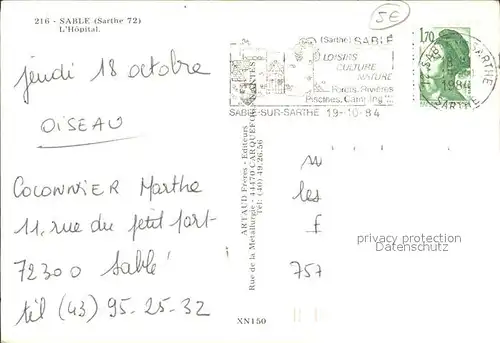 216 - SABLE (Sarthe 72)
L'Hôpital.
5€
jeudi 18 octobre
OISEAU
COLONNIER Marthe
11, rue du petit fort-
72300 Sablé
tél (43) 95-25-32
(Sarthe) SABLÉ
LOISIRS
CULTURE
NATURE
Forêts, Rivières
Piscines, Camping
SABLÉ-SUR-SARTHE 19-10-84
1,70
SABLÉ SARTHE
1984
SARTHE
ARTAUD Frères - Editeurs
Rue de la Métallurgie - 44470 CARQUEFOU-NANTES
Tél: (40) 49.26.56
les
757
privacy protection
VDMedien24.de
XN150